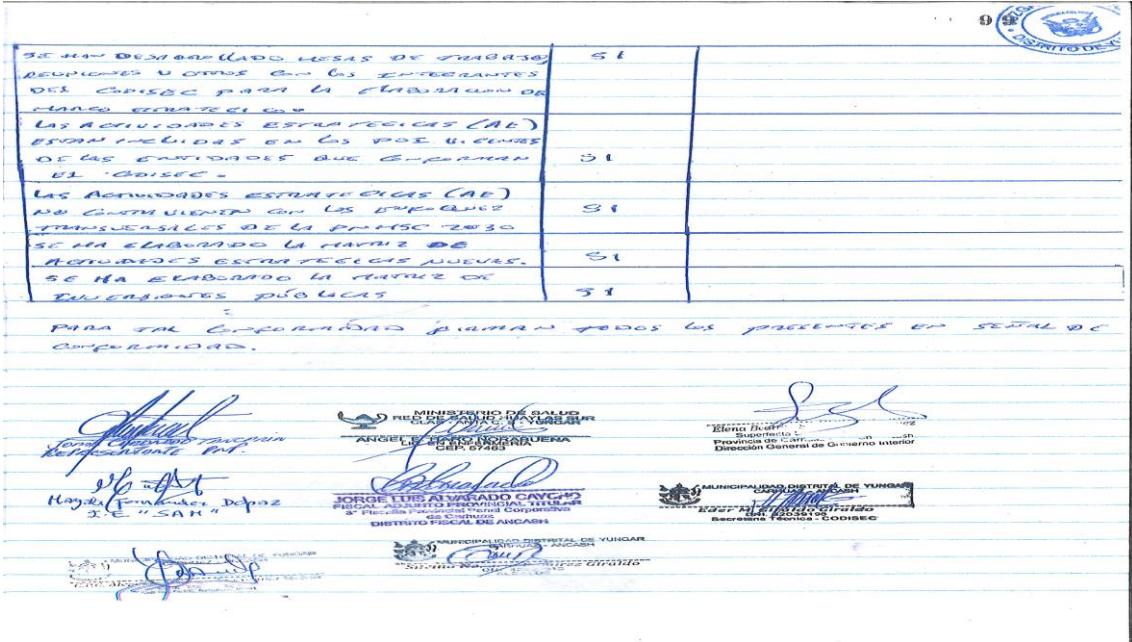 99
DISTRITO DE
SE HAN DESARROLLADO MESAS DE TRABAJO, SI
REUNIONES U OTROS CON LOS INTEGRANTES
DEL CODISEC PARA LA ELABORACION DE
MARCO ESTRATEGICO
LAS ACTIVIDADES ESTRATEGICAS (AE)
ESTAN INCLUIDAS EN LOS POI VIGENTES
DE LAS ENTIDADES QUE CONFORMAN SI
EL CODISEC.
LAS ACTIVIDADES ESTRATEGICAS (AE)
NO CONTRAVIENEN CON LOS ENFOQUEZ SI
TRANSVERSALES DE LA PNMSC 2030
SE HA ELABORADO LA MATRIZ DE
ACTIVIDADES ESTRATEGICAS NUEVAS. SI
SE HA ELABORADO LA MATRIZ DE
INVERSIONES PÚBLICAS SI
PARA TAL CONFORMIDAD FIRMAN TODOS LOS PRESENTES EN SEÑAL DE
CONFORMIDAD.
REPRESENTANTE PNP.
MINISTERIO DE SALUD
RED DE SALUD HUAYLAS SUR
YUNGAR
ANGEL E. HARO NORABUENA
LIC. EN ENFERMERÍA
CEP. 57463
Elena
Superfecta
Provincia de
Dirección General de Gobierno Interior
Magda Fernandez Depaz
I.E "SAM"
JORGE LUIS ALVARADO CAYCHO
FISCAL ADJUNTO PROVINCIAL TITULAR
3° Fiscalía Provincial Penal Corporativa
de Carhuaz
DISTRITO FISCAL DE ANCASH
MUNICIPALIDAD DISTRITAL DE YUNGAR
CARHUAZ - ANCASH
Giraldo
Secretaria Técnica - CODISEC
DISTRITAL DE YUNGAR
MUNICIPALIDAD DISTRITAL DE YUNGAR
CARHUAZ - ANCASH
Giraldo